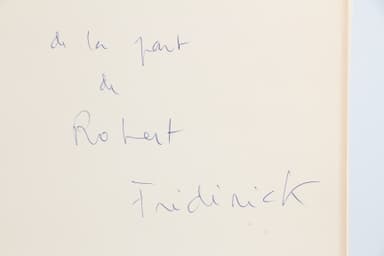 de la part
de
Robert
Frédérick